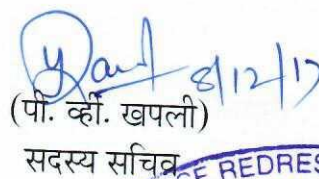 8/12/17
(पी. व्ही. खपली)
सदस्य सचिव
REDRES